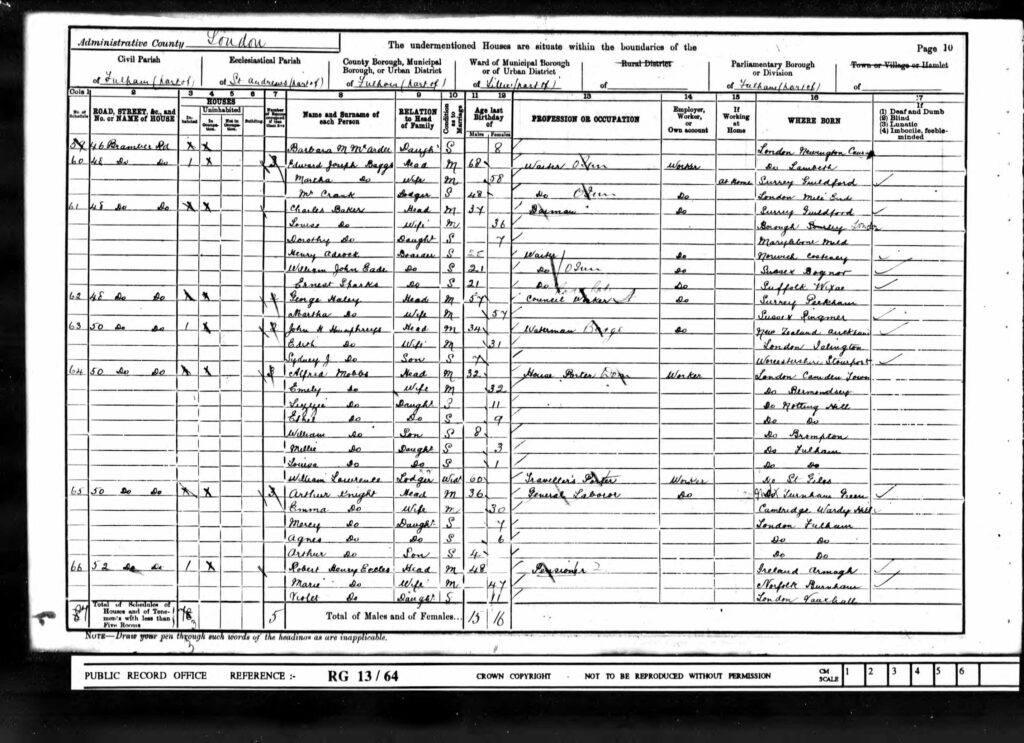 Administrative County London
The undermentioned Houses are situate within the boundaries of the
Page 10
Civil Parish
of Fulham (part of)
Ecclesiastical Parish
of St Andrews (part of)
County Borough, Municipal Borough, or Urban District
of Fulham (part of)
Ward of Municipal Borough or of Urban District
of Lillie (part of)
Rural District
of
Parliamentary Borough or Division
of Fulham (part of)
Town or Village or Hamlet
of
Cols 1 2 3 4 5 6 7 8 9 10 11 12 13 14 15 16 17
No. of Schedule
ROAD, STREET, &c., and No. or NAME of HOUSE
HOUSES
Inhabited
Uninhabited
In Occupation.
Not in Occupation.
Building.
Name and Surname of each Person
RELATION to Head of Family
Condition as to Marriage
Age last Birthday of
Males Females
PROFESSION OR OCCUPATION
Employer, Worker, or Own account
If Working at Home
WHERE BORN
If
(1) Deaf and Dumb
(2) Blind
(3) Lunatic
(4) Imbecile, feeble-minded
46 Bramber Rd Barbara M McArdle Daught S 8 London Newington
60 48 Do Do 1 X Edward Joseph Baggs Head M 68 Waiter Worker Do Lambeth
Martha Do Wife M 58 at Home Surrey Guildford
Mc Crank Lodger S 48 Do Do London Mile End
61 48 Do Do X X Charles Baker Head M 37 Do Surrey Guildford
Louise Do Wife M 36 Borough London
Dorothy Do Daught S 7 Marylebone
Henry Adcock Boarder S 25 Waiter Do Norwich
William John Eade Do S 21 Do Do Sussex Bognor
Ernest Sparks Do S 21 Do Do Suffolk
62 48 Do Do X X George Haley Head M 57 Council Worker Do Surrey Peckham
Martha Do Wife M 57 Sussex Ringmer
63 50 Do Do 1 X John H Humphreys Head M 34 Waterman Barge Do New Zealand
Edith Do Wife M 31 London Islington
Sydney J Do Son S 7 Worcestershire Stourport
64 50 Do Do X X Alfred Mobbs Head M 32 House Porter Worker London Camden Town
Emely Do Wife M 32 Do Bermondsey
Do Daught 11 Do Notting Hill
Ethel Do Do S 9 Do Do
William Do Son S 8 Do Brompton
Millie Do Daught S 3 Do Fulham
Louisa Do Do S 1 Do Do
William Lawrence Lodger Wid 60 Traveller's Porter Worker Do St Giles
65 50 Do Do X X Arthur Knight Head M 36 General Laboror Do Turnham Green
Emma Do Wife M 30 Cambridge Wardy Hill
Mercy Do Daught S 7 London Fulham
Agnes Do Do S 6 Do Do
Arthur Do Son S 4 Do Do
66 52 Do Do 1 X Robert Henry Eccles Head M 48 Pensioner Ireland Armagh
Marie Do Wife M 47 Norfolk Burnham
Violet Do Daught S 11 London Vauxhall
Total of Schedules of Houses and of Tenements with less than Five Rooms
5
Total of Males and of Females... 15 16
NOTE—Draw your pen through such words of the headings as are inapplicable.
PUBLIC RECORD OFFICE REFERENCE :- RG 13/64 CROWN COPYRIGHT - NOT TO BE REPRODUCED WITHOUT PERMISSION
CM SCALE 1 2 3 4 5 6